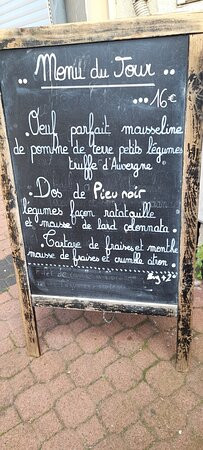 Menu du Jour
...16€
Oeuf parfait mousseline
de pomme de terre petits légumes
truffe d'Auvergne
Dos de Pieu noir
légumes façon ratatouille
et mousse de lard colonnata
Tartare de fraises et menthe
mousse de fraises et crumble citron